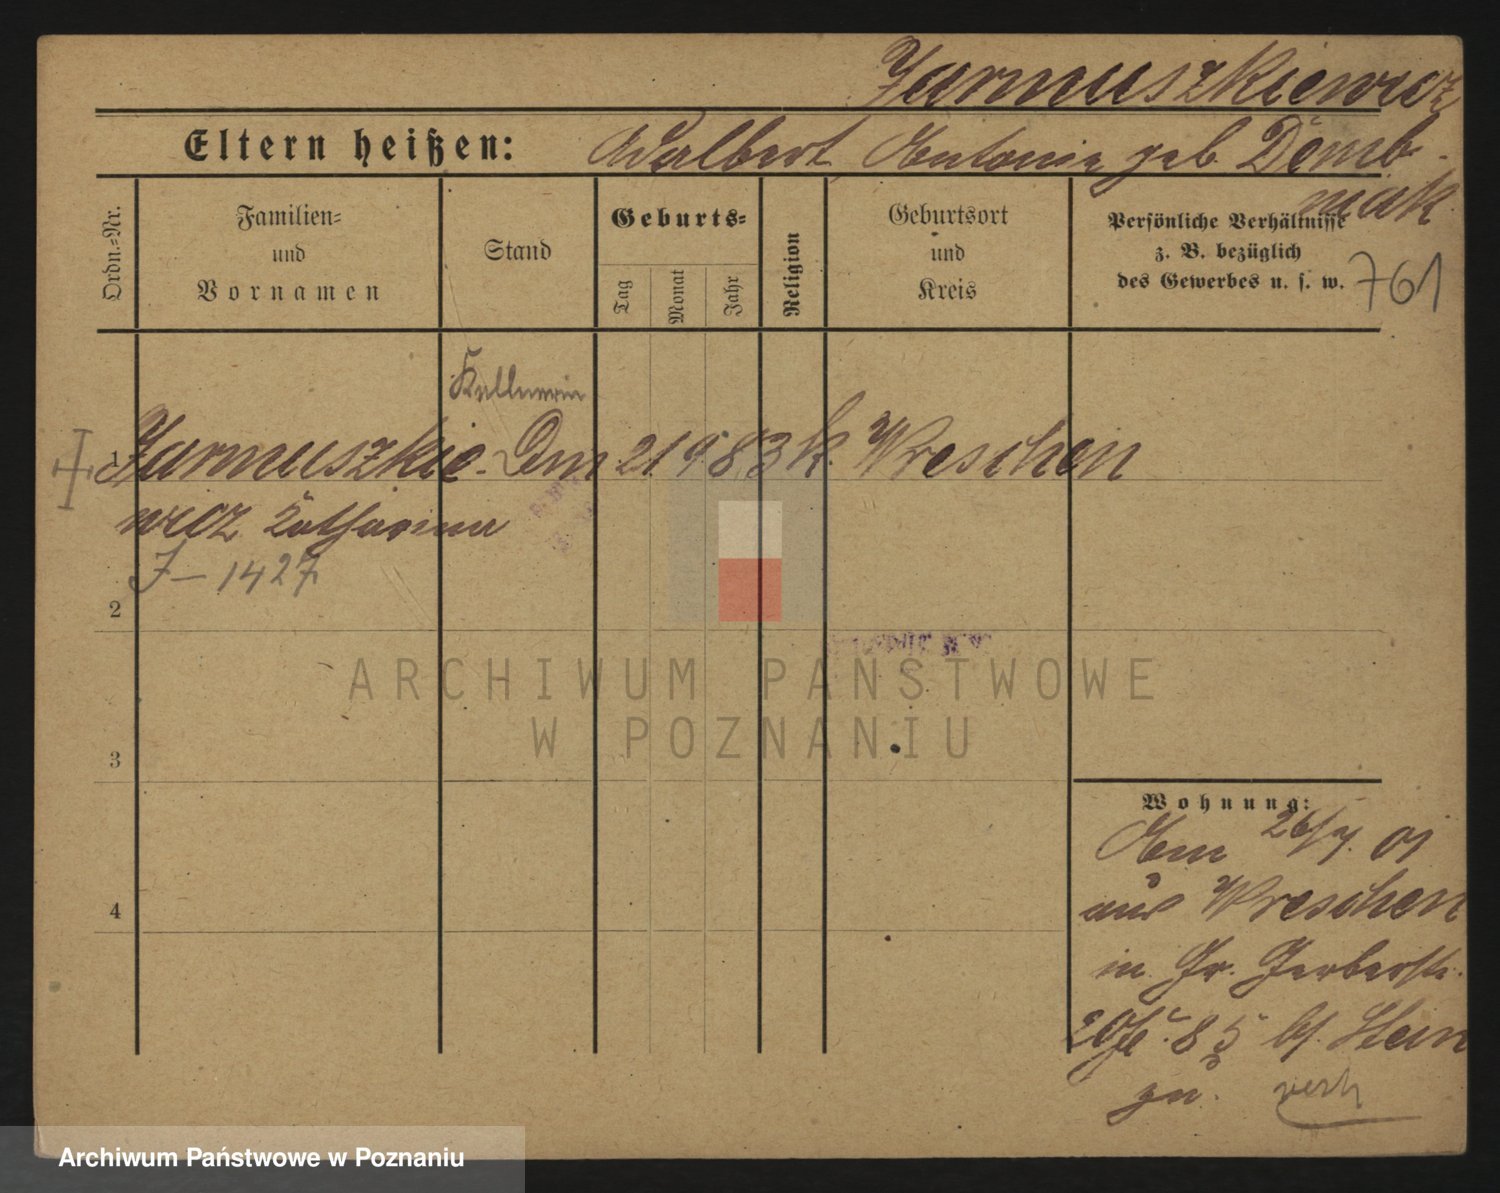 Jarmuszkiewicz
Eltern heißen: Adalbert Antonie geb. Domb-
niak
Ordn.=Nr.
Familien=
und
Vornamen
Stand
Geburts=
Tag
Monat
Jahr
Religion
Geburtsort
und
Kreis
Persönliche Verhältnisse
z. B. bezüglich
des Gewerbes u. s. w.
761
Kellnerin
1 Jarmuszkie- 21 9 83 k. Wreschen
wicz Katharina
J - 1427
2
3
4
ARCHIWUM PAŃSTWOWE
W POZNANIU
Wohnung:
Am 26/7. 01
aus Wreschen
in Gr. Gerberstr.
20 85 bf. Stein
zu. verh
Archiwum Państwowe w Poznaniu